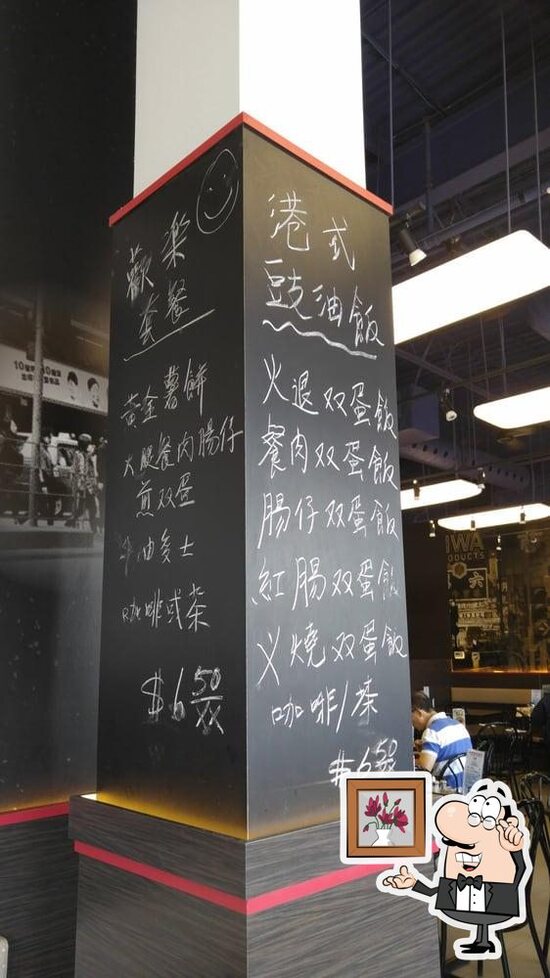 歡樂
套餐
黃金薯餅
火腿餐肉腸仔
煎双蛋
牛油多士
咖啡或茶
$6.50
港式
豉油飯
火退双蛋飯
餐肉双蛋飯
腸仔双蛋飯
紅腸双蛋飯
义燒双蛋飯
咖啡/茶
$6.50
IWA
ODUCTS